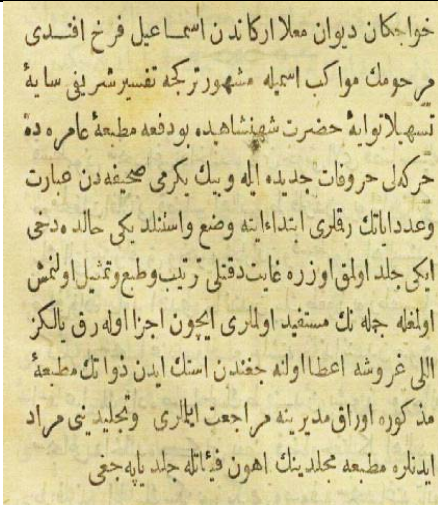 خواجكان ديوان معلا اركاندن اسمـاعيل فرخ افنـدى
مرحومك مواكب اسميله مشهور تركجه تفسير شريفى سايهٔ
تسهيلاتوايهٔ حضرت شهنشاهيده بودفعه مطبعهٔ عامره ده
حركه لى حروفات جديده ايله وبيك يكرمى صحيفه دن عبارت
وعدداياتك رقلرى ابتداءايته وضع واستنلد يكى حالده دخى
ايكى جلد اولمق اوزره غايت دقتلى ترتيب وطبع وتمثيل اولنمش
اولمغله جمله نك مستفيد اولملرى ايچون اجزا اوله رق يالكز
اللى غروشه اعطا اولنه جغندن استك ايدن ذواتك مطبعهٔ
مذكوره اوراق مديرينه مراجعت ايلملرى وتجليدينى مراد
ايدنلره مطبعه مجلدينك اهون فيئاتله جلد ياپه جغى